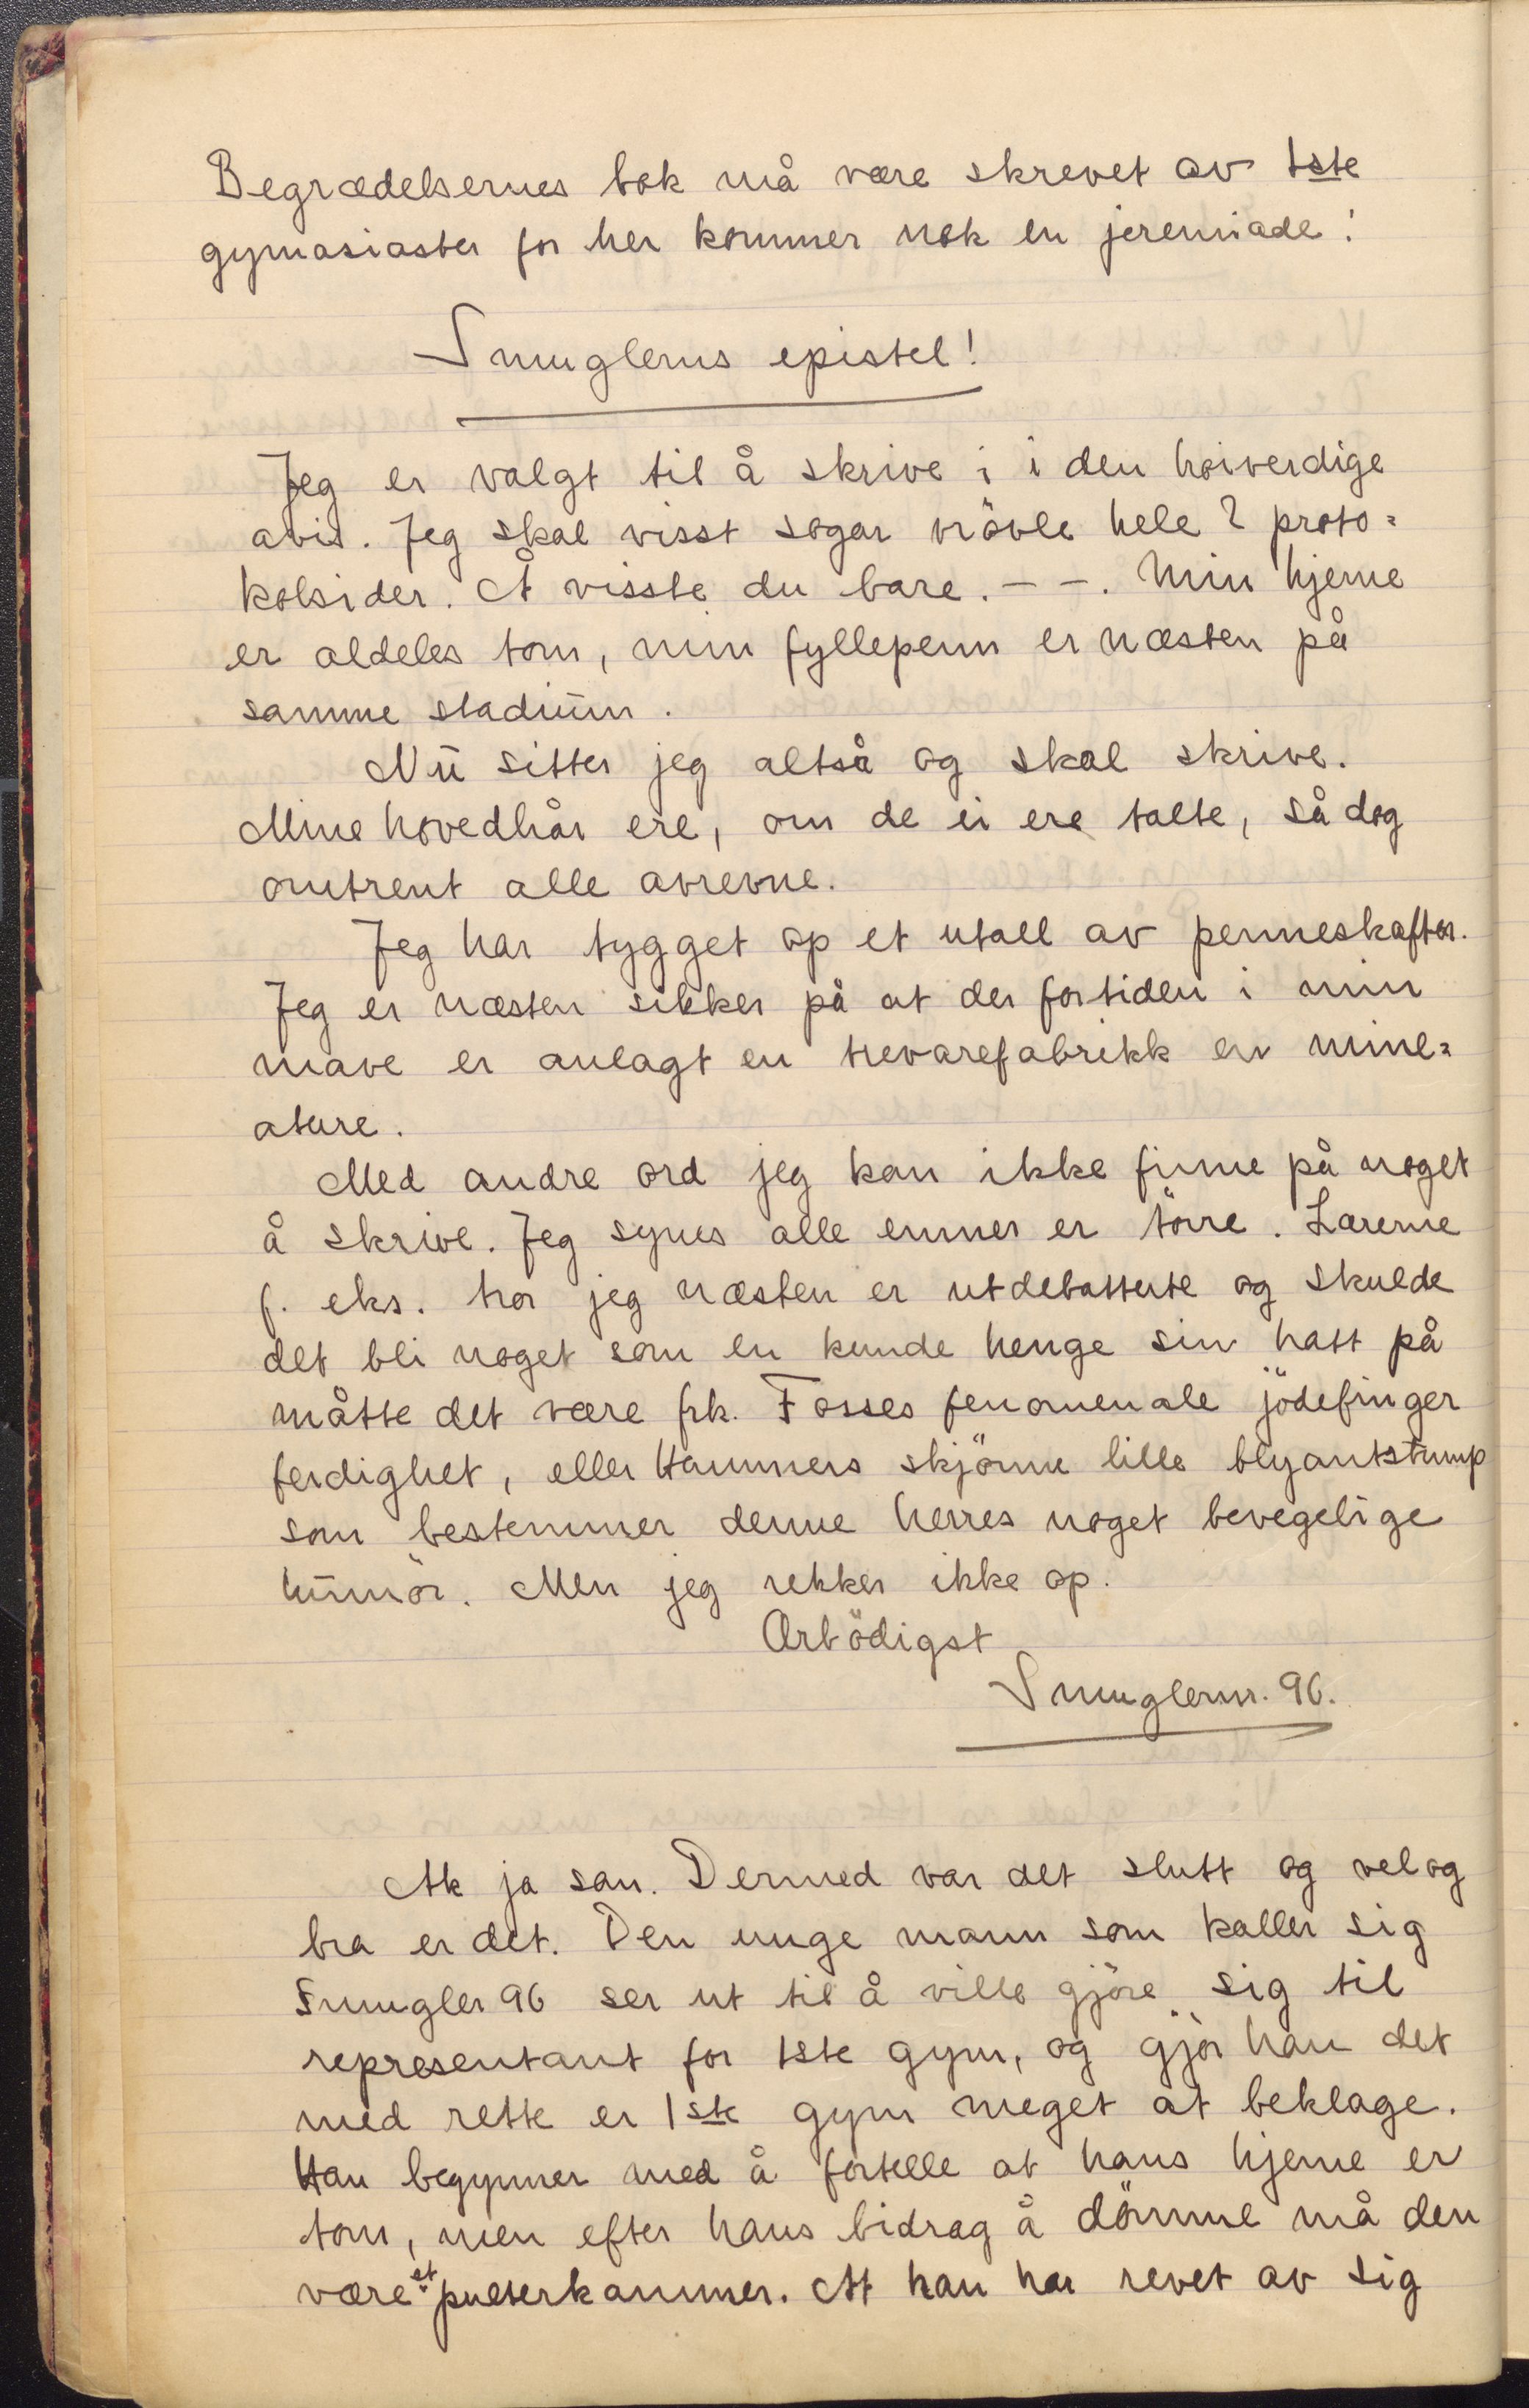 Begrædelsernes bok må være skrevet av 1ste
gymnasiaster for her kommer nok en jeremiade!
Smuglerns epistel!
Jeg er valgt til å skrive i i den høiverdige
avis. Jeg skal visst sogar vrövle hele 2 proto=
kolsider. Å visste du bare. – –. Min hjerne
er aldeles tom, min fyllepenn er næsten på
samme stadium.
Nu sitter jeg altså og skal skrive.
Mine hovedhår ere, om de ei ere talte, så dog
omtrent alle avrevne.
Jeg har tygget op et utall av penneskafter.
Jeg er næsten sikker på at der fortiden i min
mave er anlagt en trevarefabrikk en mine=
ature.
Med andre ord jeg kan ikke finne på noget
å skrive. Jeg synes alle emner er törre. Lærerne
f. eks. tror jeg næsten er utdebatterte og skulde
det bli noget som en kunde henge sin hatt på
måtte det være frk. Fosses fenomenale jödefinger
ferdighet, eller Hammers skjönne lille blyantstump
som bestemmer denne herres noget bevegelige
humör. Men jeg rekker ikke op.
Ærbödigst
Smuglernr. 96.
Ak ja san. Dermed var det slutt og vel og
bra er det. Den unge mann som kaller sig
Smugler 96 ser ut til å ville gjöre sig til
representant for 1ste gym, og gjör han det
med rette er 1ste gym meget at beklage.
Han begynner med å fortelle at hans hjerne er
tom, men efter hans bidrag å dömme må den
være et pulterkammer. At han har revet av sig